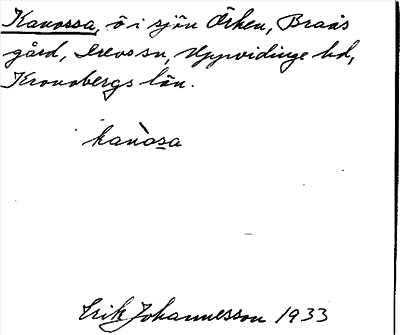 Kanossa, ö i sjön Örken, Braås
gård, Drevs sn, Uppvidinge hd,
Kronobergs län.
kanòsa
Erik Johannesson 1933